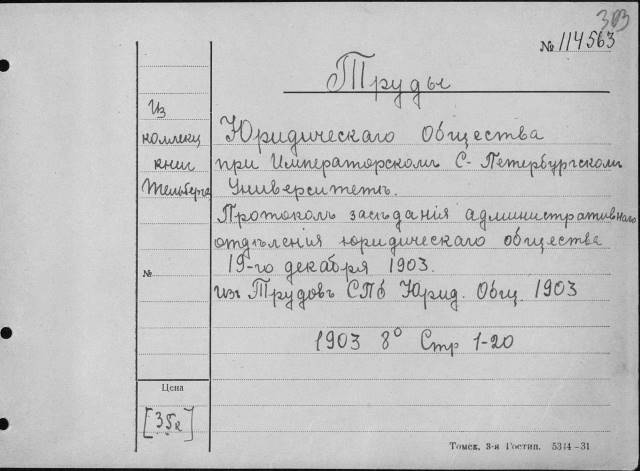 303
№ 114563
Труды
Из
коллекц
книг
Тельберга
Юридическаго Общества
при Императорскомъ С-Петербургскомъ
Университетѣ.
Протоколъ засѣданія административнаго
отдѣленія юридическаго общества
19-го декабря 1903.
изъ Трудовъ СПб Юрид. Общ. 1903
№
1903 8° Стр 1-20
Цена
[35к]
Томск. 3-я Гостип. 5344-31